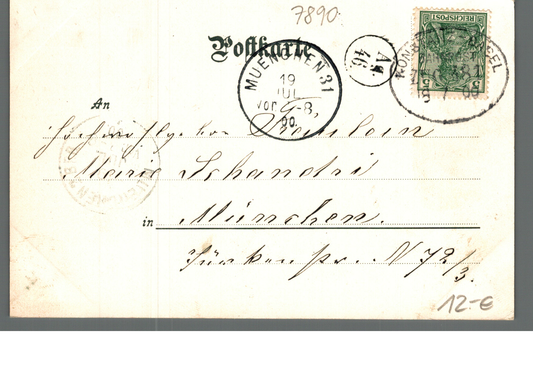 7890.
Postkarte
REICHSPOST
5 5
MUENCHEN 31
19
JUL
Vor 7-8
00.
A4
46
An
Hochwohlgebor. Fräulein
Marie Schandri
in München.
Türkenstr. N 72/3.
12.-€